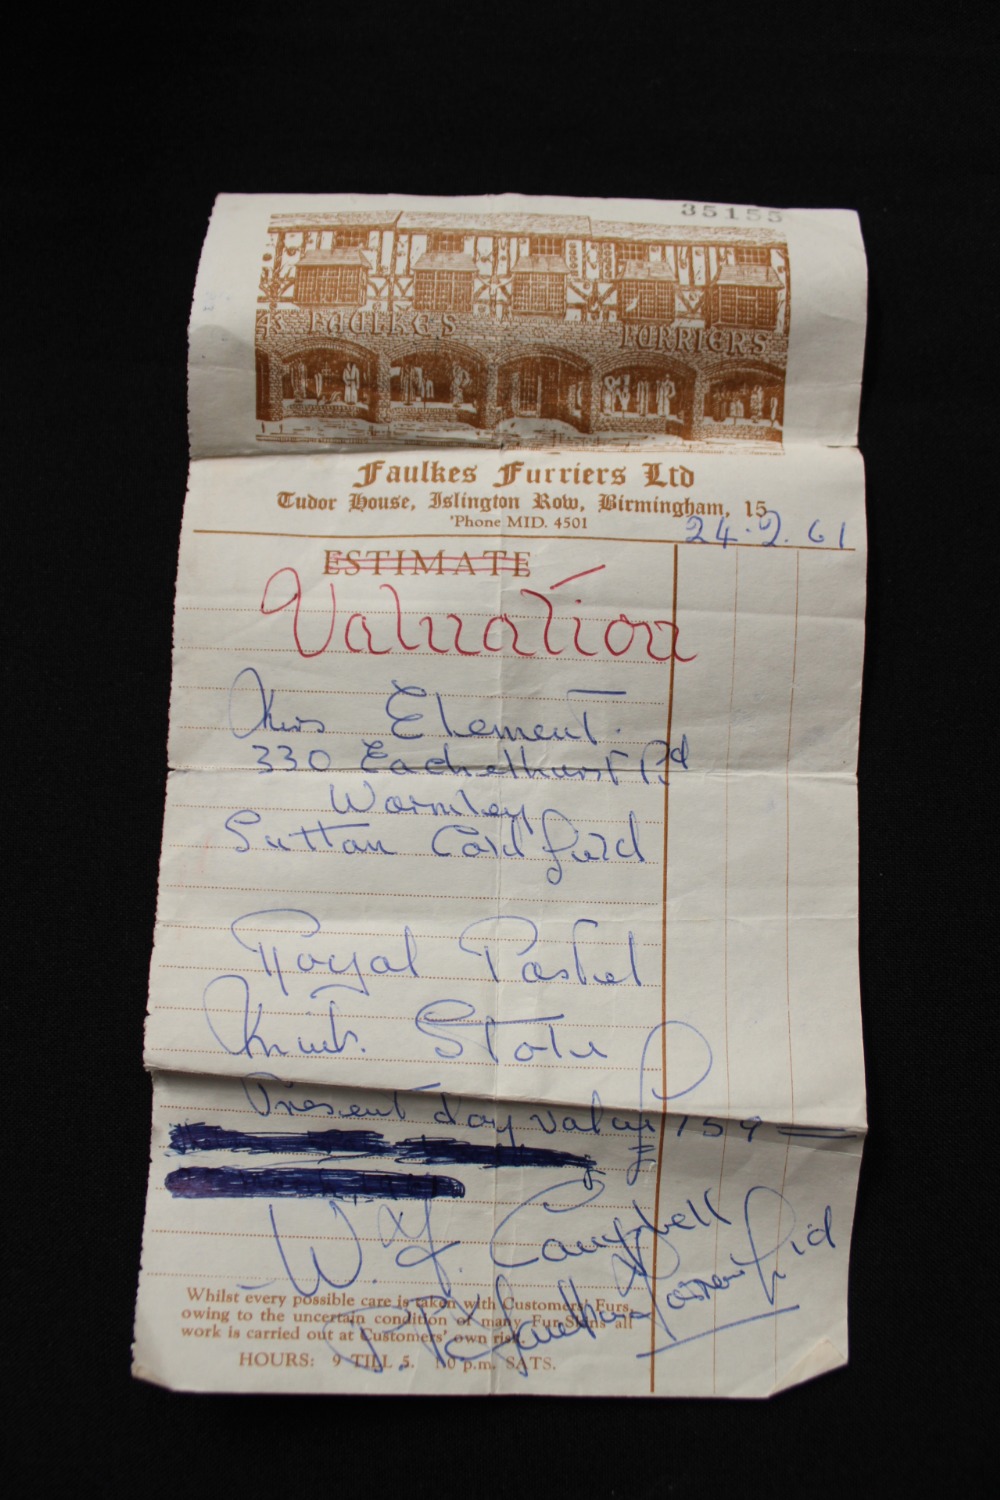 35155
FAULKES FURRIERS
Faulkes Furriers Ltd
Tudor House, Islington Row, Birmingham, 15
'Phone MID. 4501
24.2.61
ESTIMATE
Valuation
Element.
330 Eachelhurst Rd
Warmley
Sutton Coldfield
Royal Pastel
Mink Stole
Present day value £159
W. J. Campbell
P.P.
Whilst every possible care is taken with Customers' Furs,
owing to the uncertain condition of many Fur Skins all
work is carried out at Customers' own risk.
HOURS: 9 TILL 5. p.m. SATS.